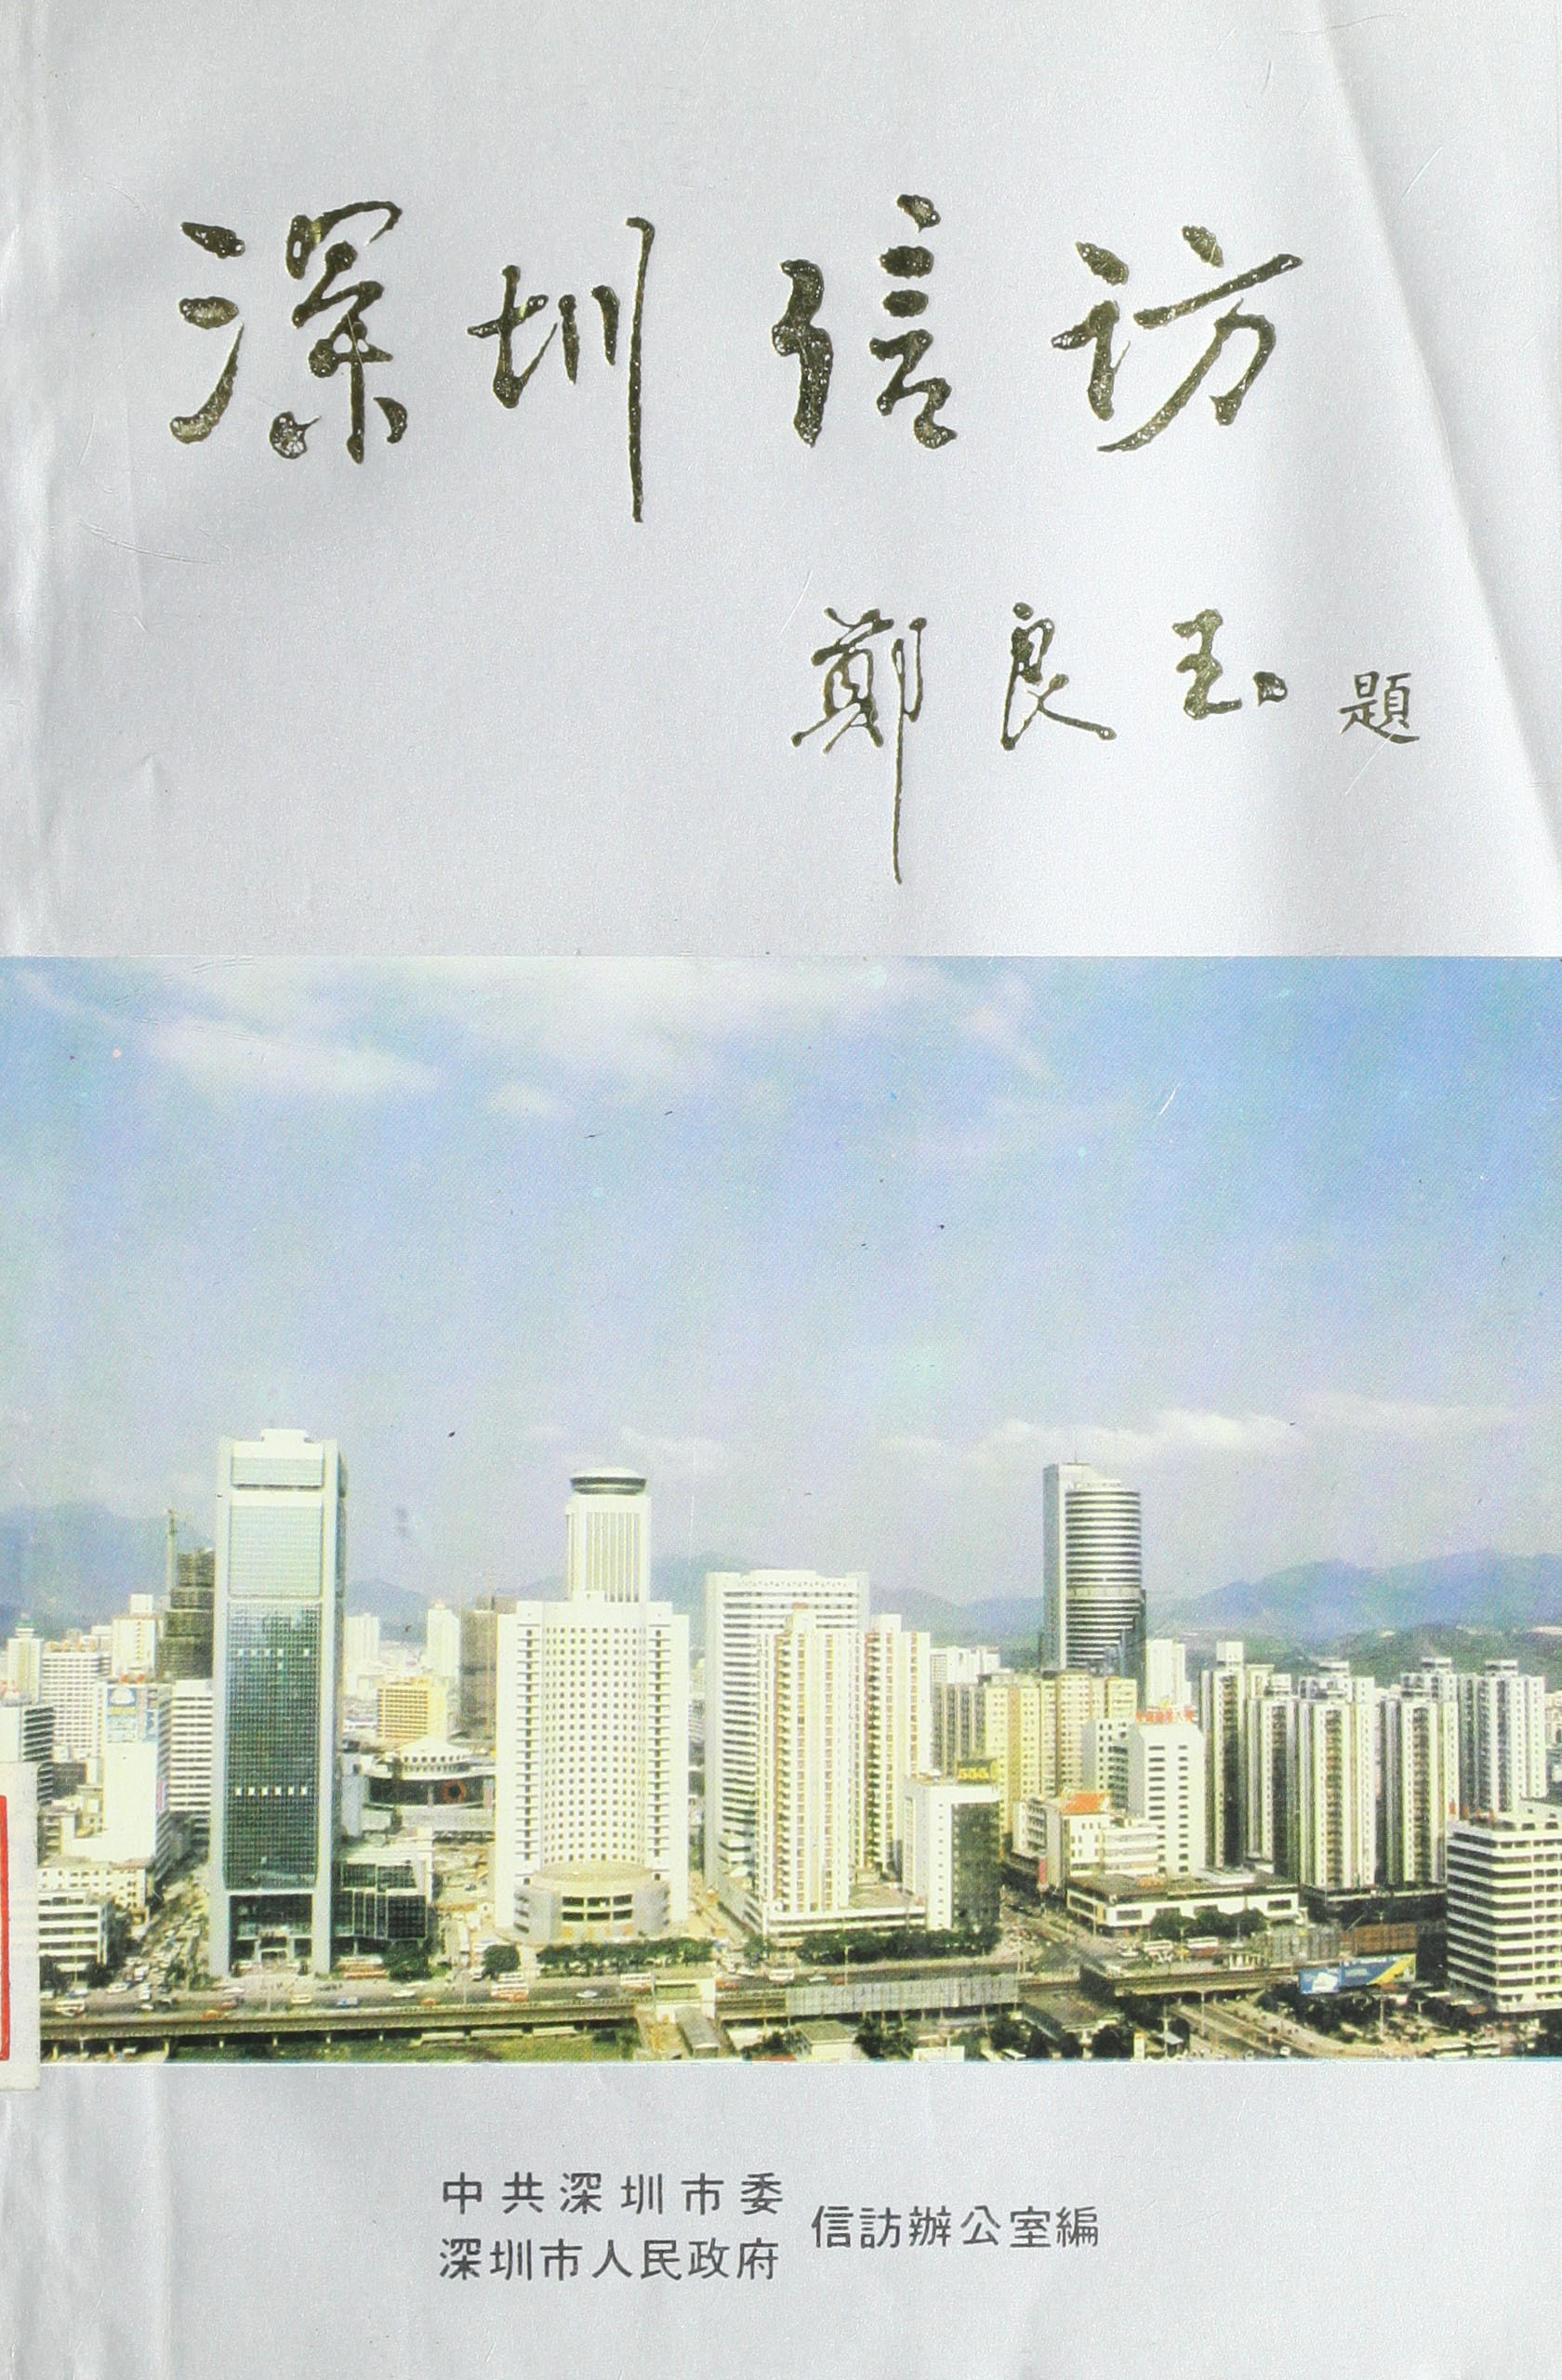 深圳信访
鄭良玉 題
555
中共深圳市委
深圳市人民政府
信訪辦公室編